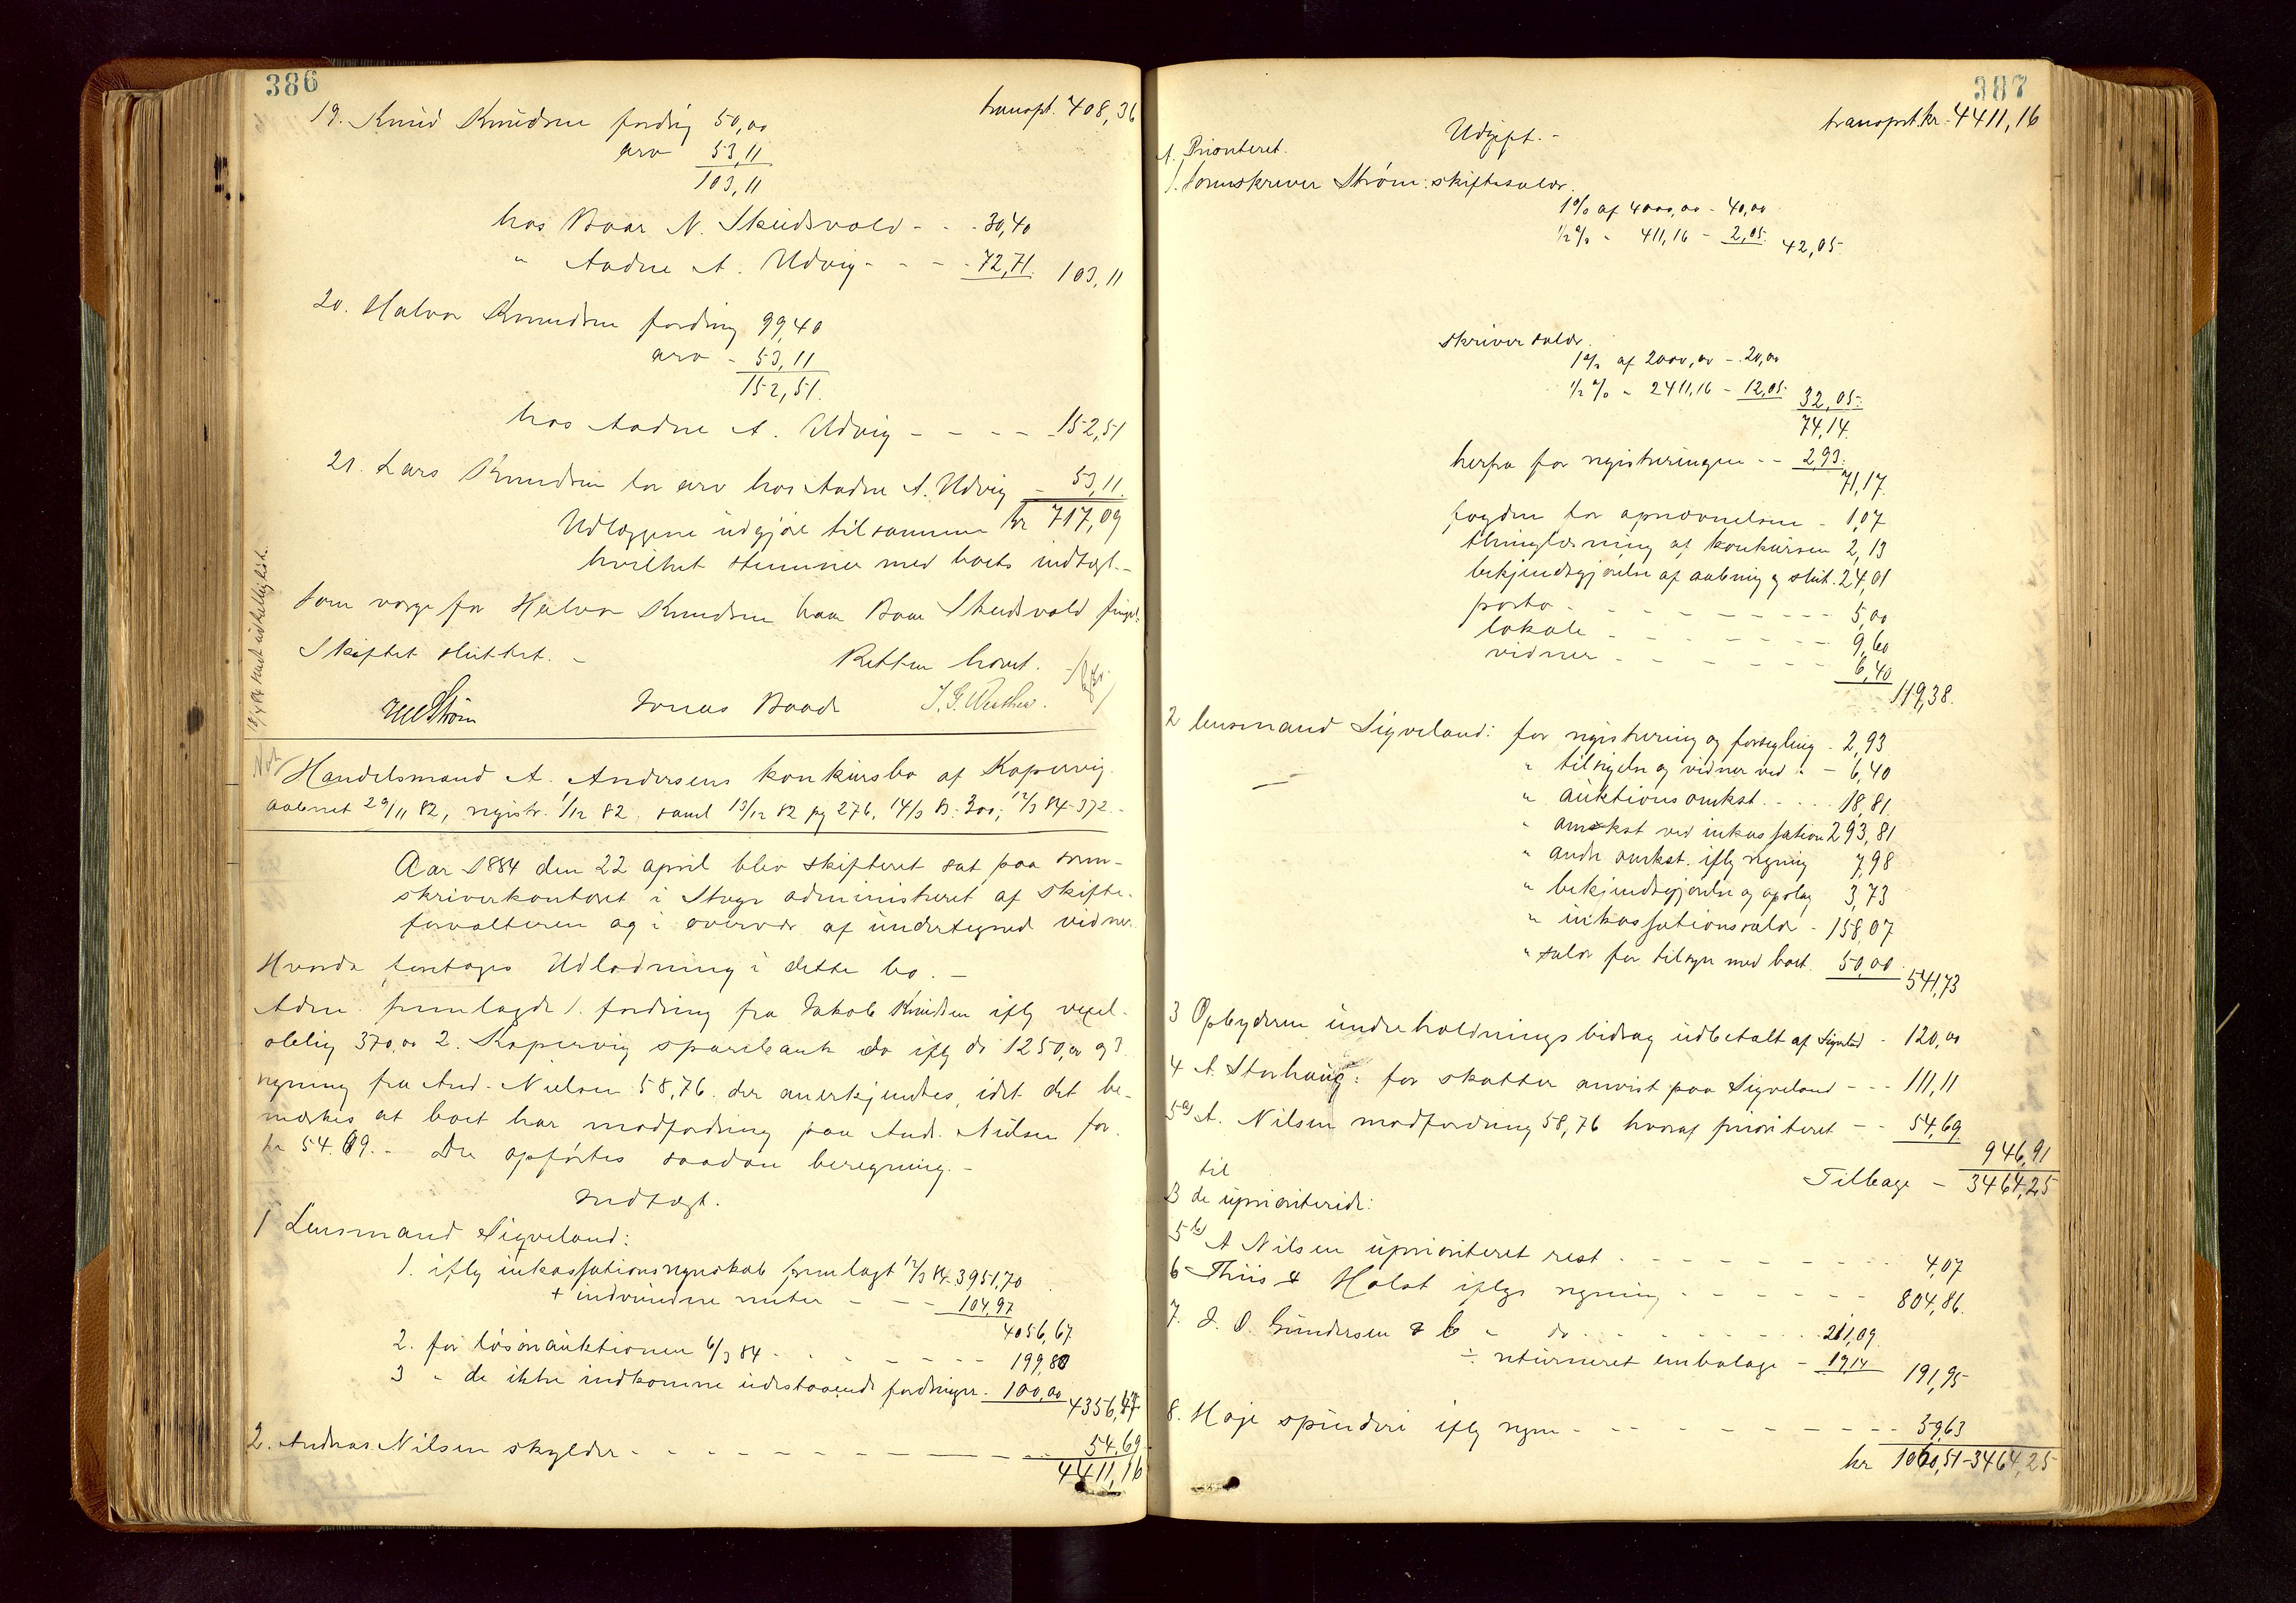 386
transpt. 408,36
19. Knud Knudsen fordrg 50,00
arv 53,11
103,11
hos Baar N. Skudsvold - - - 30,40
" Aadne A. Udvig - - - - 72,71. 103,11
20. Halvor Knudsen fordring 99,40
arv - 53,11
152,51.
hos Aadne A. Udvig - - - - 152,51
21. Lars Knudsen for arv hos Aadne A. Udvig - 53,11.
Udlæggene udgjør tilsammen kr 717,09
hvilket stemmer med boets indtægt. -
Som værge for Halvor Knudsen Baar Skudsvold
Skiftet sluttet. - Retten hævet.
Strøm Jonas Baad
Handelsmand A. Andersens konkursbo af Kopervig.
aabnet 29/11 82, registr. 1/12 82, saml 13/12 82 pg 276, 14/3 83. 300, 12/3 84-372. -
Aar 1884 den 22 april blev skifteret sat paa soren-
skriverkontoret i administreret af skifte-
forvalteren og i overvær af undertegned vidner
Hvorda foretages Udlodning i dette bo. -
Adm. fremlagde 1. fordring fra Jakob Knudsen iflg vexel-
oblig 370,00 2. Kopervig sparebank do iflg do 1250,00 og 3.
regning fra And. Nielsen 58,76. der anerkjendtes, idet det be-
mærkes at boet har modfordring paa Andr. Nielsen for
kr 54.69. - Der opførtes saadan beregning. -
Indtægt.
1 Lensmand Sigveland:
1. iflg inkassationsregnskab fremlagt 12/3 84. 3951,70
+ indvundne renter - - - 104,97
4056,67
2. for løsøreauktionen 6/3 84 - - - - - - - 199,80
3 " de ikke indkomne udestaaende fordringer - 100,00 4356,47
2. Andreas Nilsen skylder - - - - - - - - - - 54,69
4411,16
387
transprt. kr. 4411,16
Udgift. -
A. Prioriteret.
1. Sorenskriver Strøm: skiftesalær.
1% af 4000,00 - 40,00
1/2 % - 411,16 - 2,05. 42,05.
skriversalær.
1% af 2000,00 - 20,00
1/2 % - 2411,16 - 12,05. 32,05.
74,14.
herfra for registreringen - - 2,93.
71,17.
fogden for opnævnelsen - 1,07
thinglæsning af konkursen 2,13
bekjendtgjørelse af aabning og slut. 24,01
porto - - - - - - - - 5,00
lokale - - - - - - - 9,60
vidner - - - - - - - 6,40
119,38.
2 lensmand Sigveland: for registrering og forsegling - 2,93
" tilsigelse og vidner ved " - 6,40
" auktionsomkst. - - - - 18,81
" omkst ved inkassation 293,81
" andre omkst. iflg regning 7,98
" bekjendtgjørelse og opslag 3,73
" inkassationssalær - 158,07
" salær for tilsyn med boet. 50,00.
541,73
3 Opbyderen underholdningsbidrag udbetalt af Sigveland - 120,00
4 A. Storhaug: for skatter anvist paa Sigveland - - - 111,11
5a) A. Nilsen modfordring 58,76 hvoraf prioriteret - - 54,69.
946,91
Tilbage - 3464,25
til
B de uprioriterede:
5b) A Nilsen uprioriteret rest - - - - - - - - 4,07
6 Thiis & Holst iflge regning - - - - - - 804,86.
7. J. O. Gundersen & C " do - - - - - - - 211,09.
÷ returneret embalage - 19,14 191,95
8. Høje spinderi iflg regn - - - - - - - - - 59,63
kr 1060,51 - 3464,25